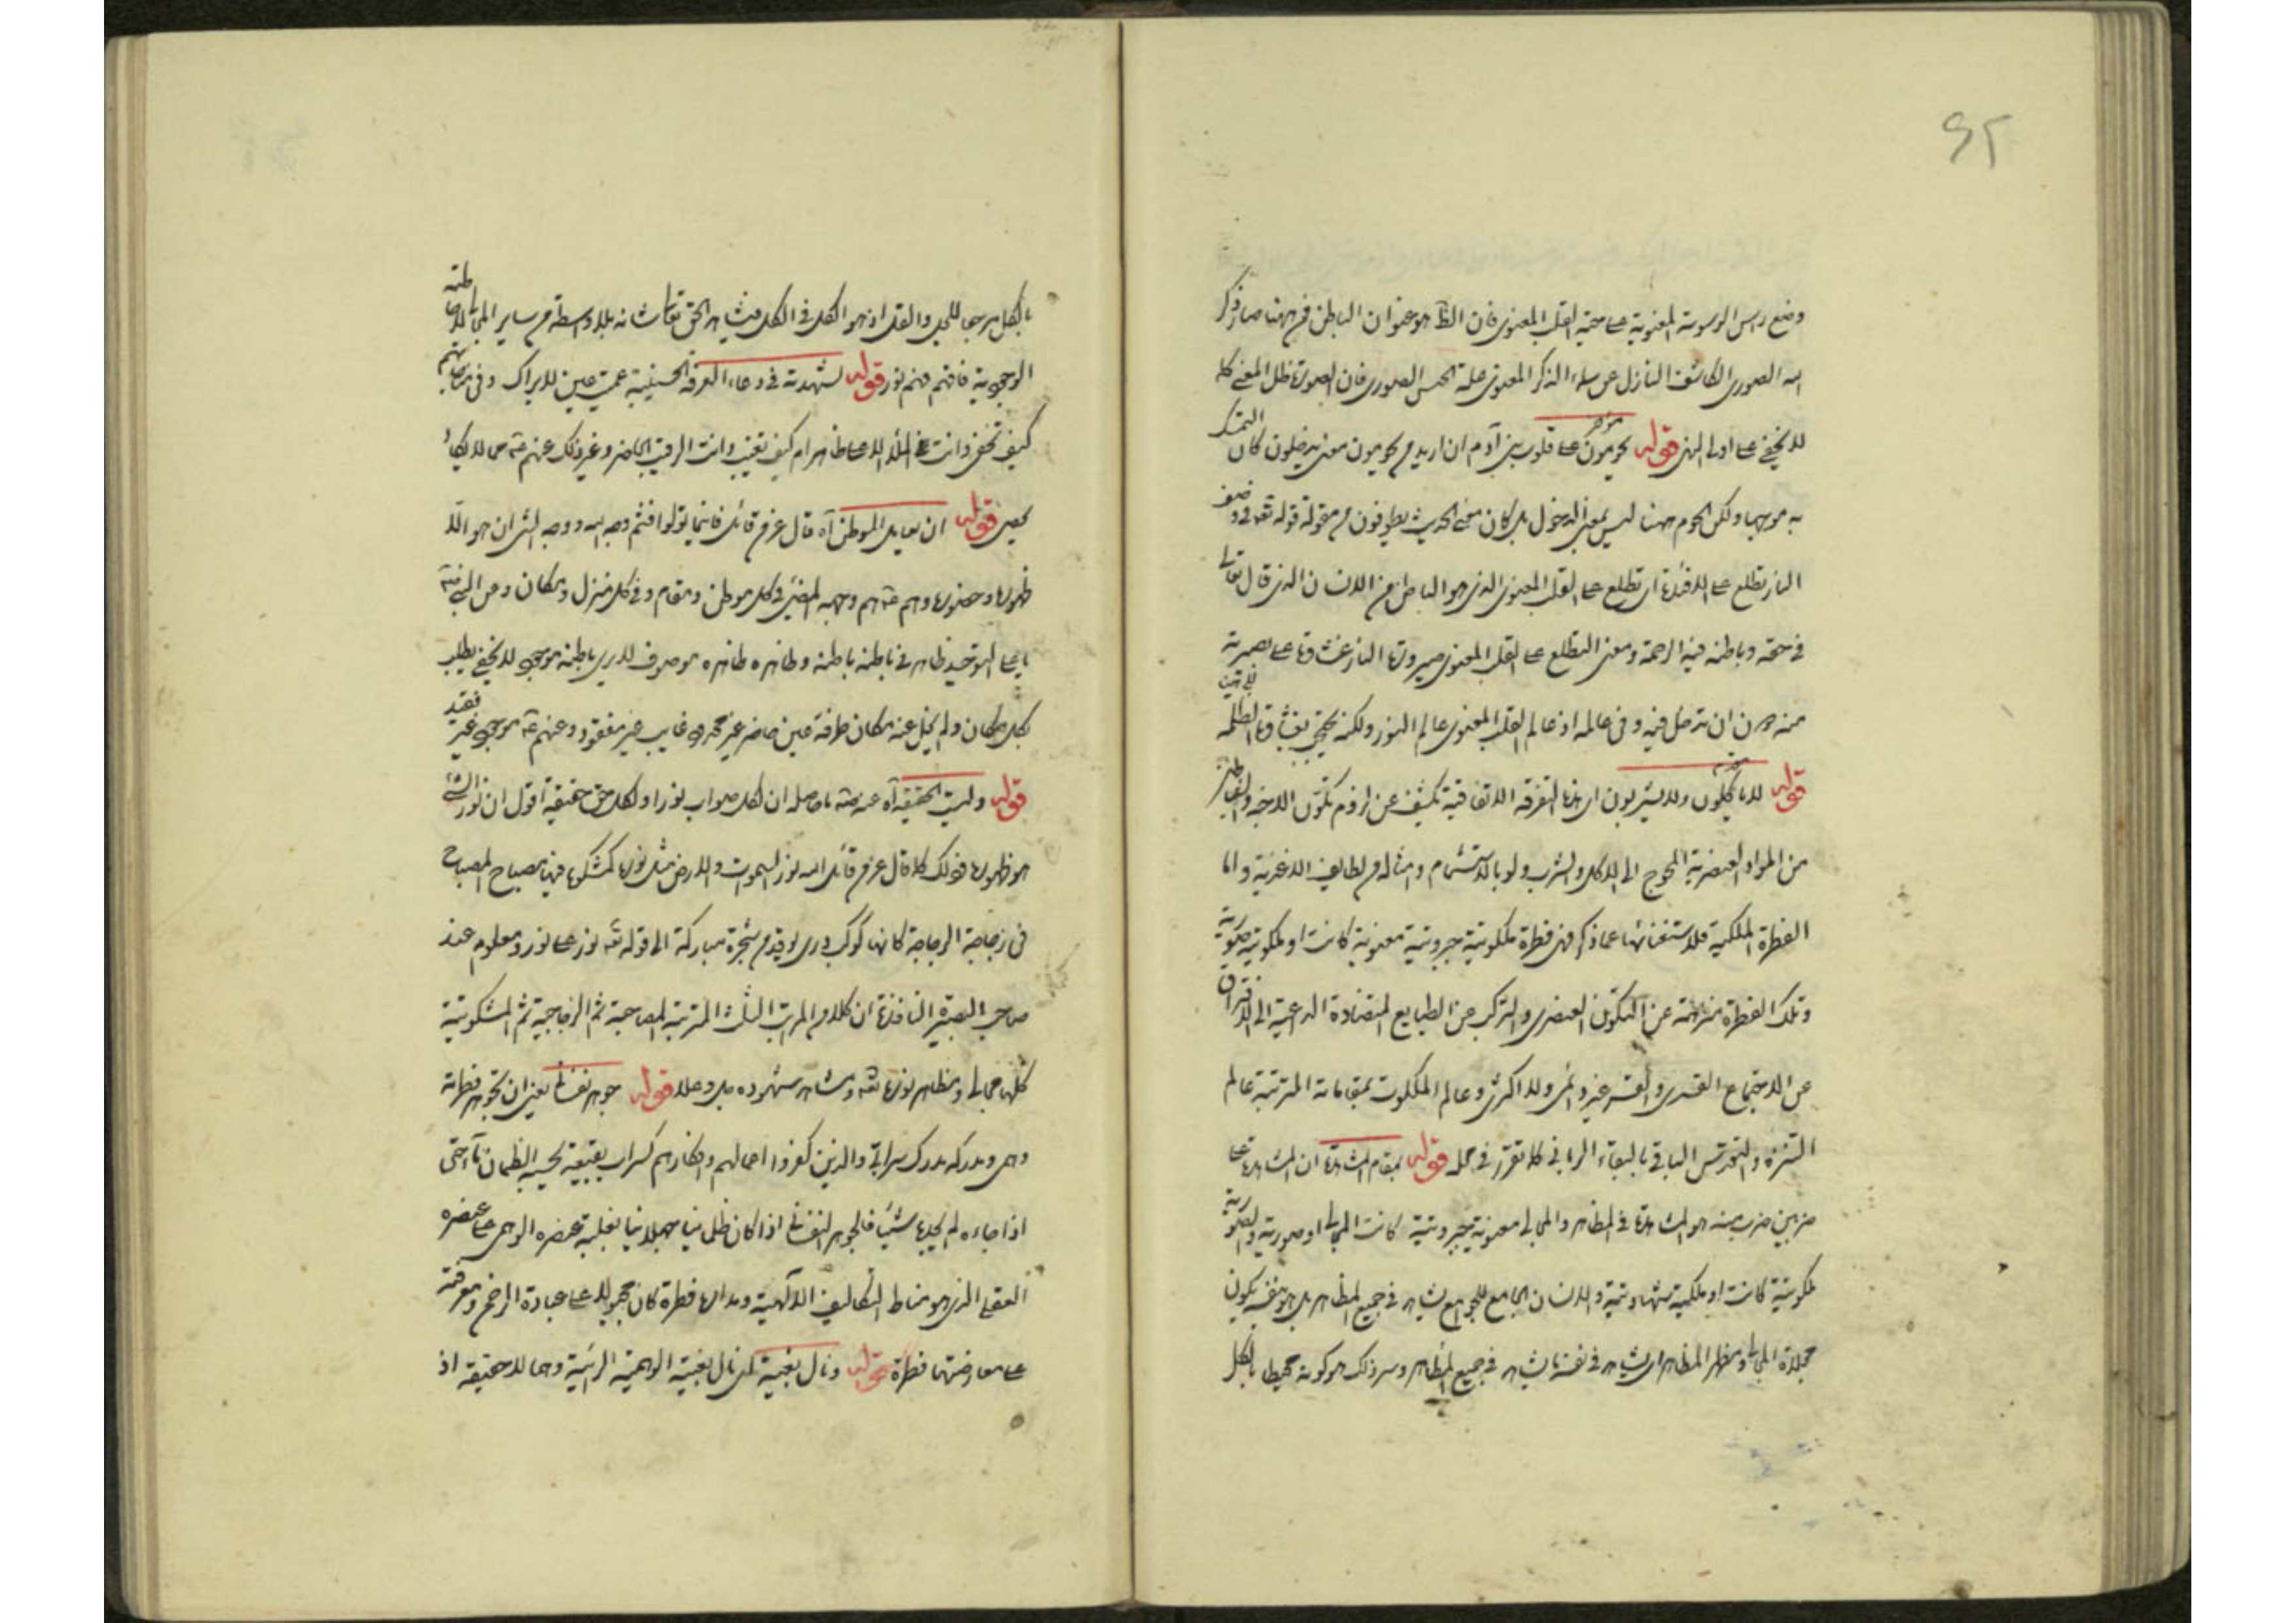 ۶۲
وضع راس الوسوسة المعنوية على حجة القلب المعنوى فان الظاهر عنوان الباطن فمن ههنا صار ذكر
الله الصورى الكاشف النازل عن سماء الذكر المعنوى علة الحس الصورى فان الصورة ظل المعنى كما
لا يخفى على اولى النهى قوله يحومون على قلوب بنى آدم ان اريد من يحومون معنى يدخلون كان التمسك
به موجها ولكن الحوم ههنا ليس بمعنى الدخول بل كان معنى الحديث يطوفون من مقولة قوله تعه فى وصف
النار تطلع على الافئدة اى تطلع على القلب المعنوى الذى هو الباطن من الانسان الذى قال تعالى
فى حقه وباطنه فيه الرحمة ومعنى التطلع على القلب المعنوى صيرورة النار غشاوة على بصيرته
من دون ان تدخل فيه وفى عالمه اذ عالم القلب المعنوى عالم النور ولكنه يحتجب بغشاوة الظلمة
قوله لا ياكلون ولا يشربون اى هذه التفرقة الاتفاقية تكشف عن لزوم تكون الاجنة والشياطين
من المواد العنصرية المحوج الى الاكل والشرب ولو بالاستشمام وامثاله من لطايف الاغذية واما
الفطرة الملكية فلاستغنائها عما ذكر فهى فطرة ملكوتية جبروتية معنوية كانت او ملكوتية صورية
وتلك الفطرة منزهة عن التكون العنصرى والتركب من الطبايع المتضادة الداعية الى الافتراق
عن الاجتماع القسرى والقسر غير دائمى ولا اكثرى وعالم الملكوت بمقاماته المترتبة عالم
التنزه والتقدس الباقى بالبقاء الربانى كما تقرر فى محله قوله بمقام المشاهدة ان المشاهدة على
ضربين ضرب منه هو المشاهدة فى المظاهر والمجالى معنوية جبروتية كانت المجالى او صورية والصورية
ملكوتية كانت او ملكية شهادتية والانسان الجامع للجوامع يشاهد فى جميع المظاهر بل هو بنفسه يكون
مجلاة المجالى ومظهر المظاهر اى يشاهد فى نفسه ما يشاهد فى جميع المظاهر وسر ذلك هو كونه محيطا بالكل
بالكل مرجعا للجل والقل اذ هو الكل فى الكل فيشاهد الحق تعالى شانه بلا وساطة من ساير المجالى
الوجوبية فافهم فهم نور قوله لشهدته فى دعاء العرفة الحسينية عميت عين لا تراك وفى مناجاتهم
كيف تخفى وانت الظاهر ام كيف تغيب وانت الرقيب الحاضر وغير ذلك عنهم عه مما لا يكاد
يحصى قوله ان يعاين الموطن آه قال عز من قائل فاينما تولوا فثم وجه الله ووجه الشى ان هو الا
ظهوره وحضوره وهم عه هم وجهه المضىء فى كل موطن ومقام وفى كل منزل ومكان
يا على التوحيد ظاهره فى باطنه باطنه وظاهره ظاهره موصوف لا يرى باطنه موجود لا يخفى يطلب
بكل مكان ولم يخل عنه مكان طرفة عين حاضر غير محدود وغايب غير مفقود وعنهم عه موجود غير فقيد
قوله وليت الحقيقة آه عنه عه ما حاصله ان لكل صواب نورا ولكل حق حقيقة اقول ان نور الشى
هو ظهوره فذلك كما قال عز من قائل الله نور السموات والارض مثل نوره كمشكوة فيها مصباح المصباح
فى زجاجة الزجاجة كانها كوكب درى يوقد من شجرة مباركة الى قوله تعه نور على نور ومعلوم عند
صاحب البصيرة النافذة ان كلا من المراتب الثلث المترتبة المصباحية ثم الزجاجية ثم المشكوتية
كلها مجالى ومظاهر نوره تعه ومشاهد شهوده جل وعلا قوله جوهر نفسانى يعنى ان تجوهر فطرته
وهمى ومدركه مدرك سرابى والذين كفروا اعمالهم وافكارهم كسراب بقيعة يحسبه الظمان ماء حتى
اذا جاءه لم يجده شيئا فالجوهر النفسانى اذا كان ظلمانيا جهلانيا بغلبة عنصره الوهمى على عنصره
العقلى الذى هو مناط التكاليف الالهية ومدارها فطرة كان مجبولا على عبادة الرحمن ومعرفته
على معارضتها فطرة قوله ونال بغيته لمن نال بغيته الوهمية الرائمية وهما لا حقيقة اذ